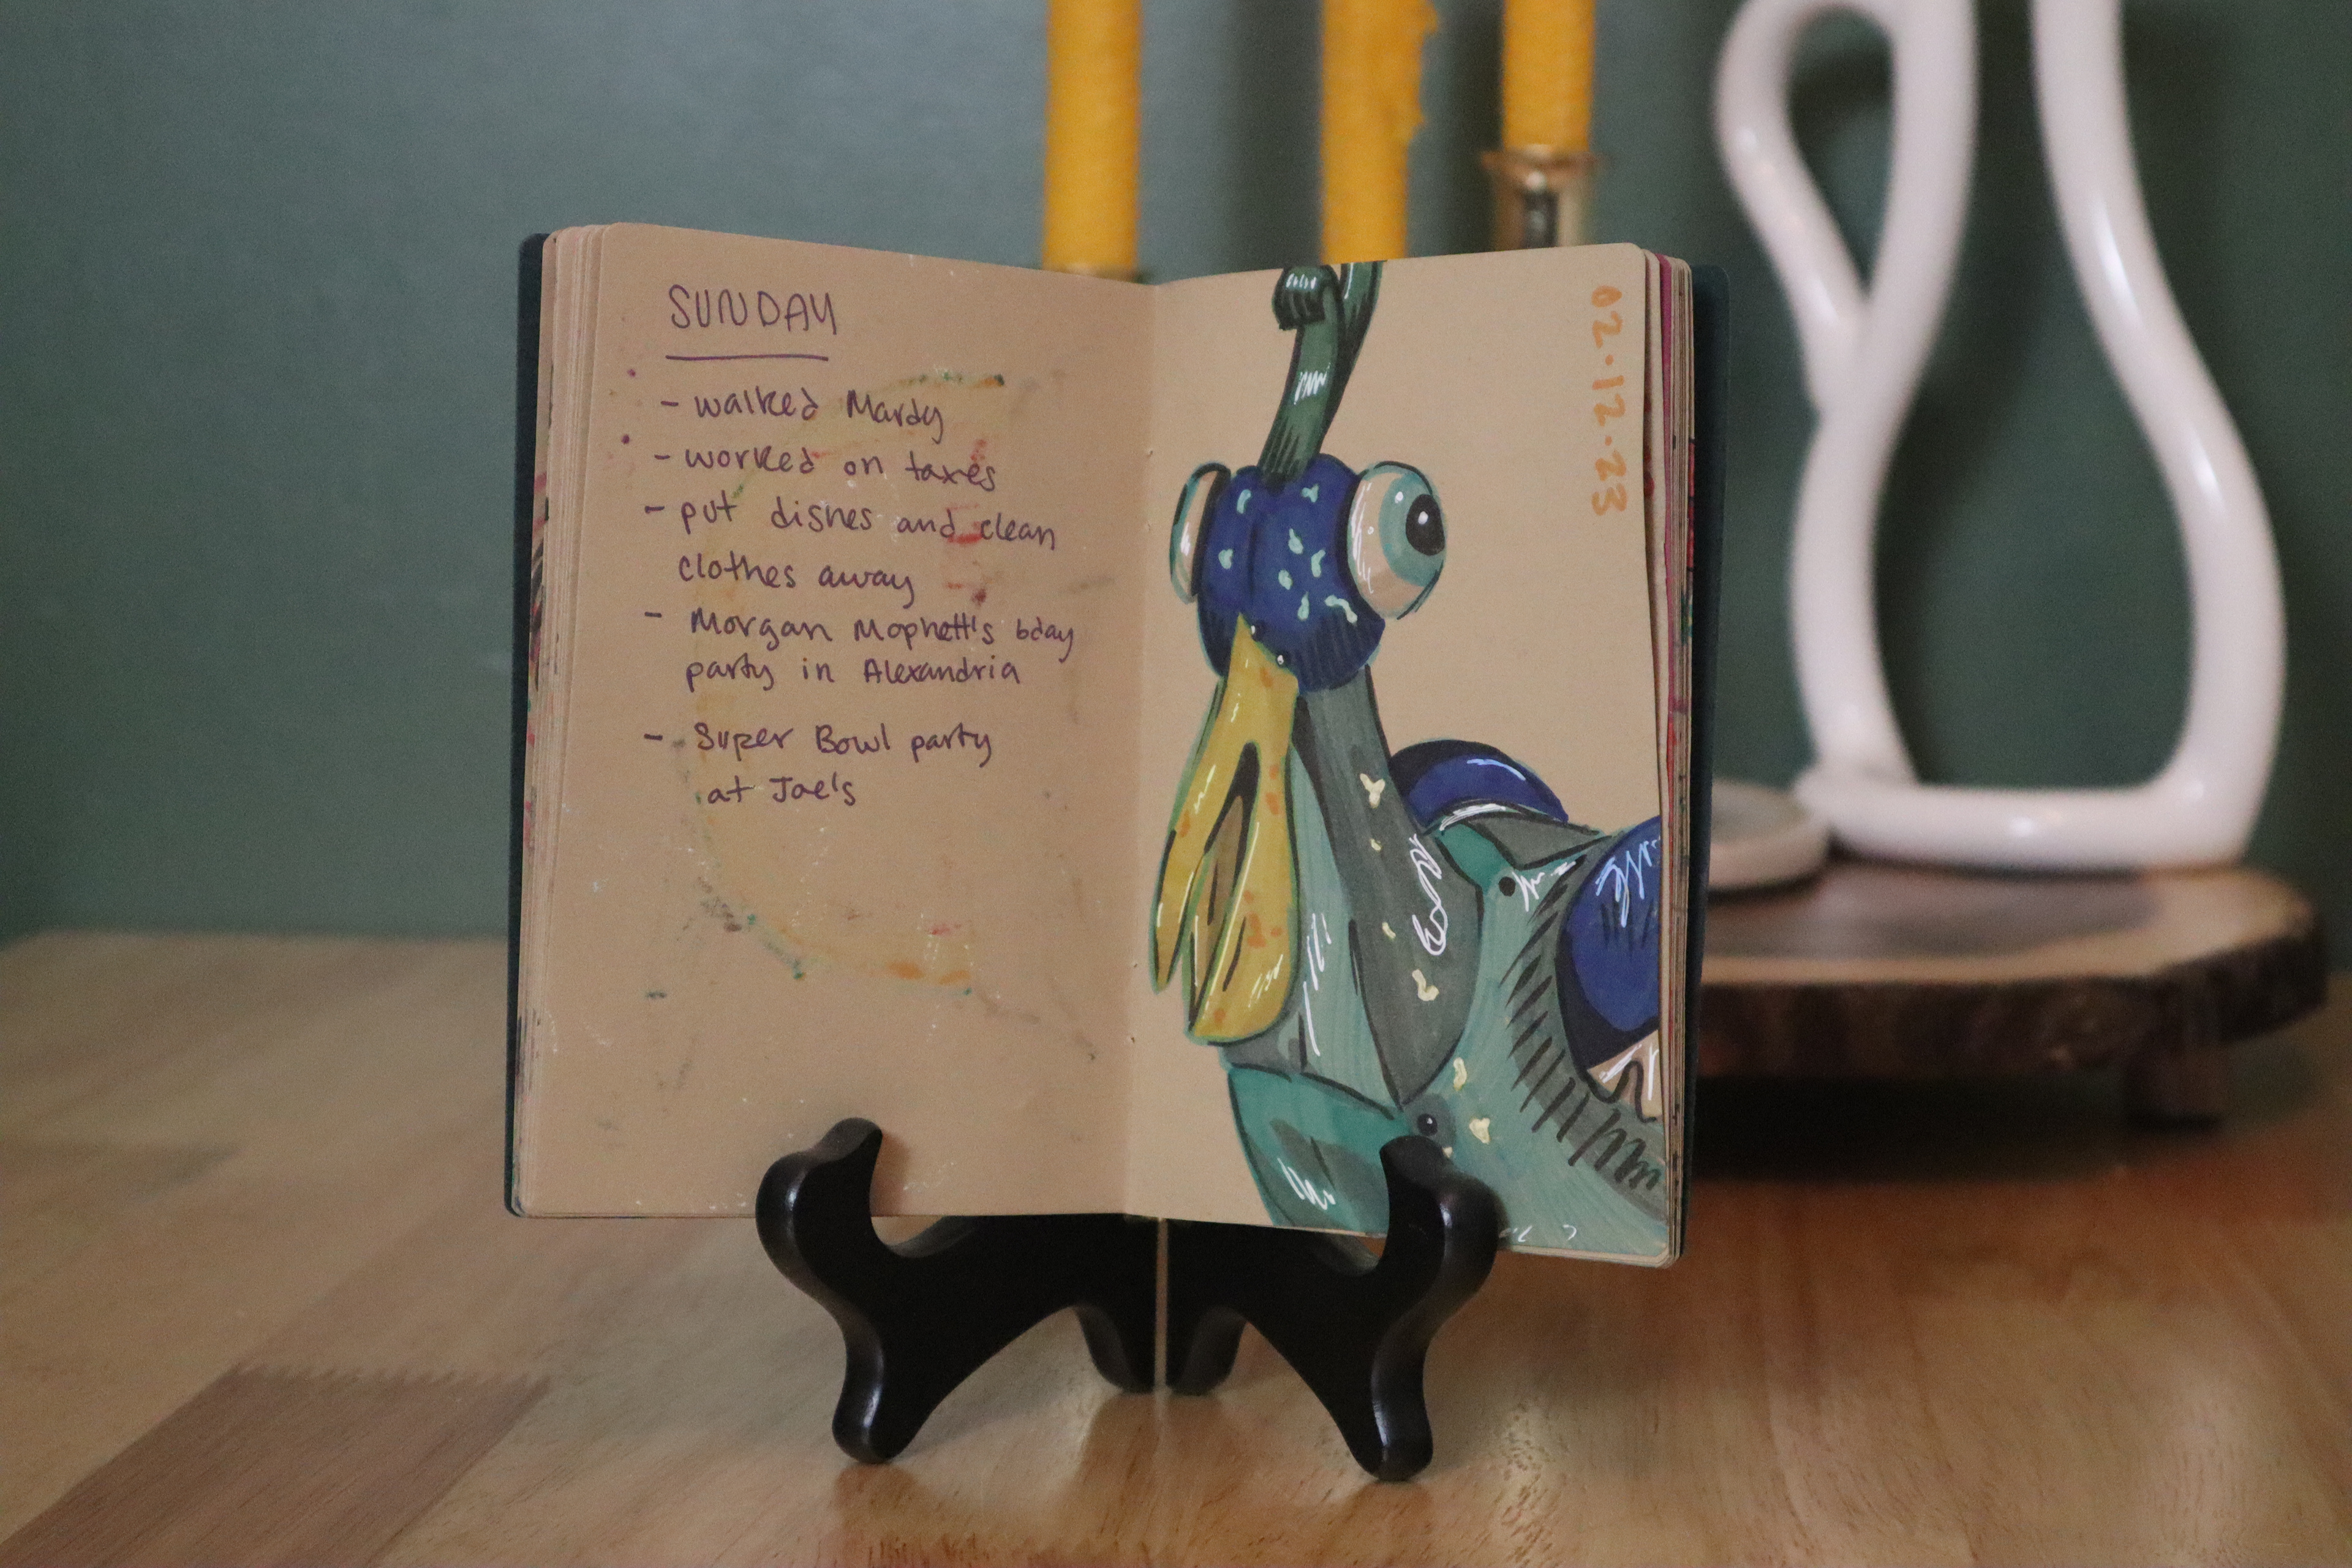 SUNDAY
- walked Mardy
- worked on taxes
- put dishes and clean
clothes away
- Morgan Mophett's bday
party in Alexandria
- Super Bowl party
at Joe's
02.12.23